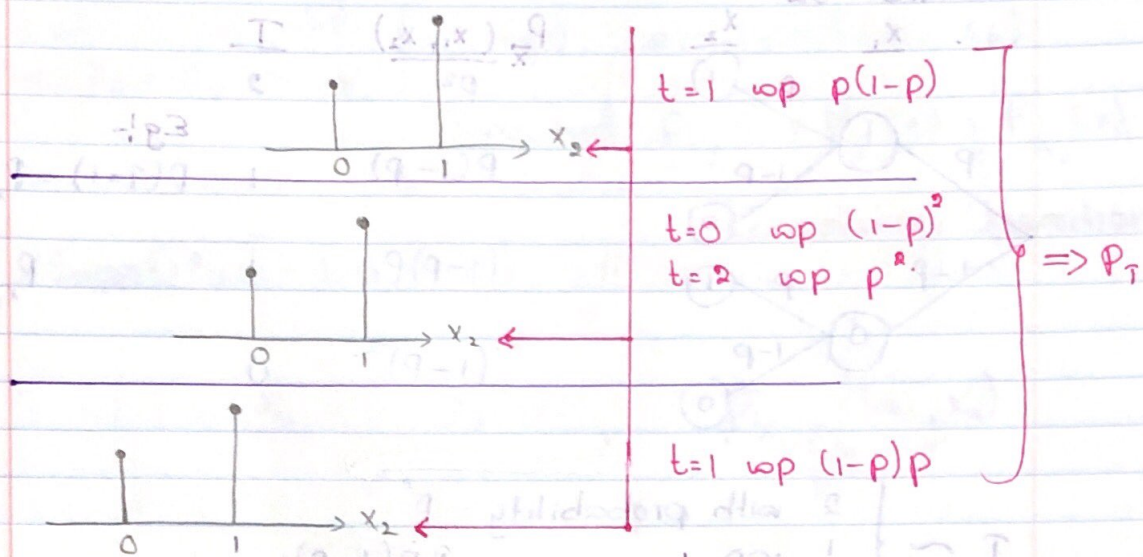 t=1 wp p(1-p)
0 1 x₂
t=0 wp (1-p)²
t=2 wp p².
=> P_T
0 1 x₂
t=1 wp (1-p)p
0 1 x₂